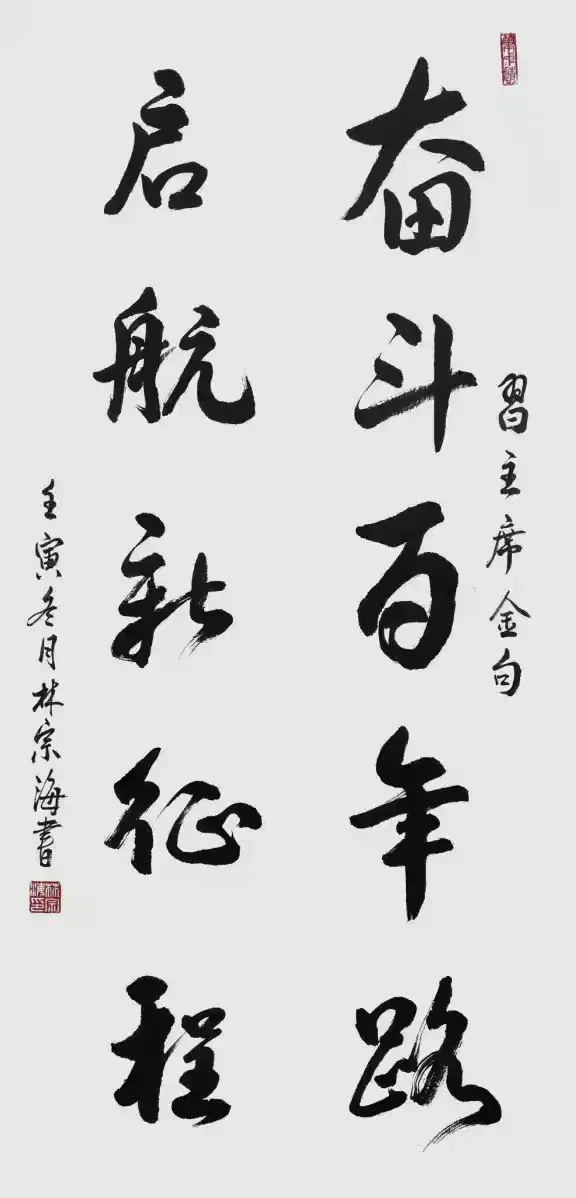 习主席金句
奋斗百年路
启航新征程
壬寅冬月林宗海書
林宗海印